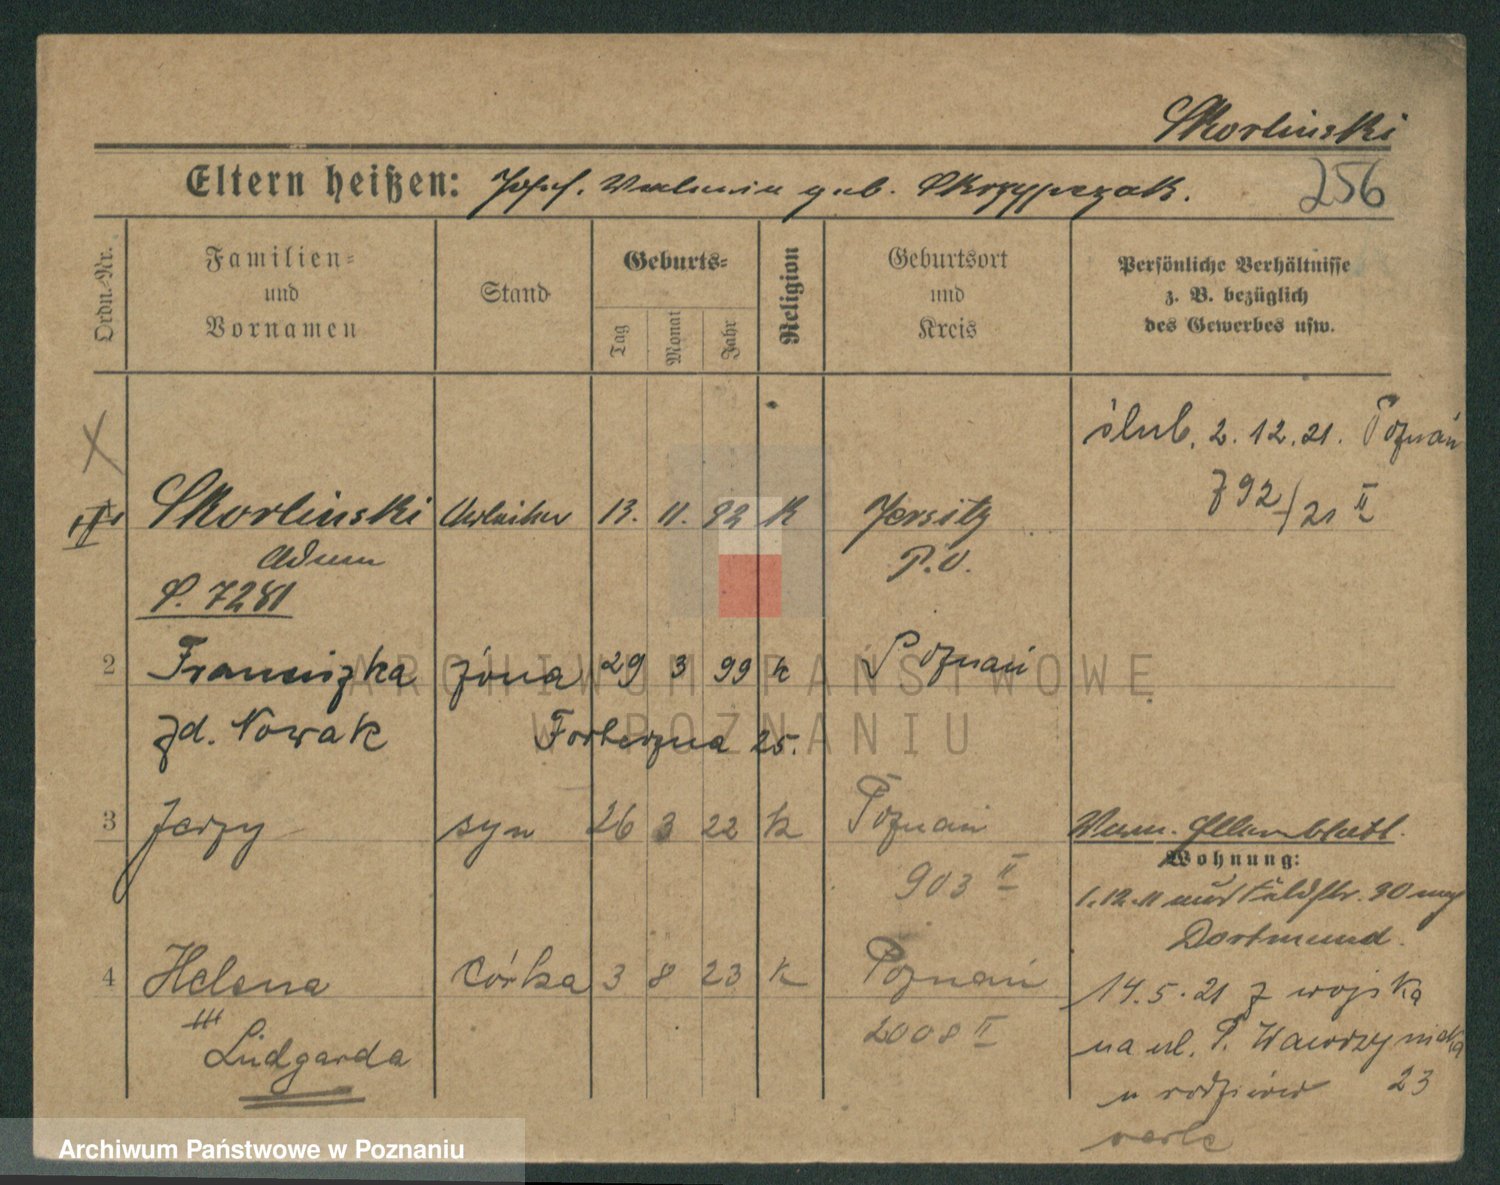 Skorlinski
256
Eltern heißen: Josef. Waleria geb. Skrzypczak.
Ordn.-Nr.
Familien- und Vornamen
Stand
Geburts-
Tag
Monat
Jahr
Religion
Geburtsort und Kreis
Persönliche Verhältnisse z. B. bezüglich des Gewerbes usw.
ślub. 2. 12. 21. Poznań
792/21 II
Skorlinski Arbeiter 13. 11. 92 K Jersitz
Adam P.O.
S. 7281
2 Franciszka żona 29 3 99 k Poznań
zd. Nowak Forteczna 25.
3 Jerzy syn 26 3 22 k Poznań
903 II
Wohnung:
1.12.11
Dortmund.
4 Helena córka 3 8 23 k Poznań
Ludgarda 2008 II
14. 5. 21 z wojska
na ul. P. Wawrzyniaka
u rodziców 23
ARCHIWUM PAŃSTWOWE
W POZNANIU
Archiwum Państwowe w Poznaniu